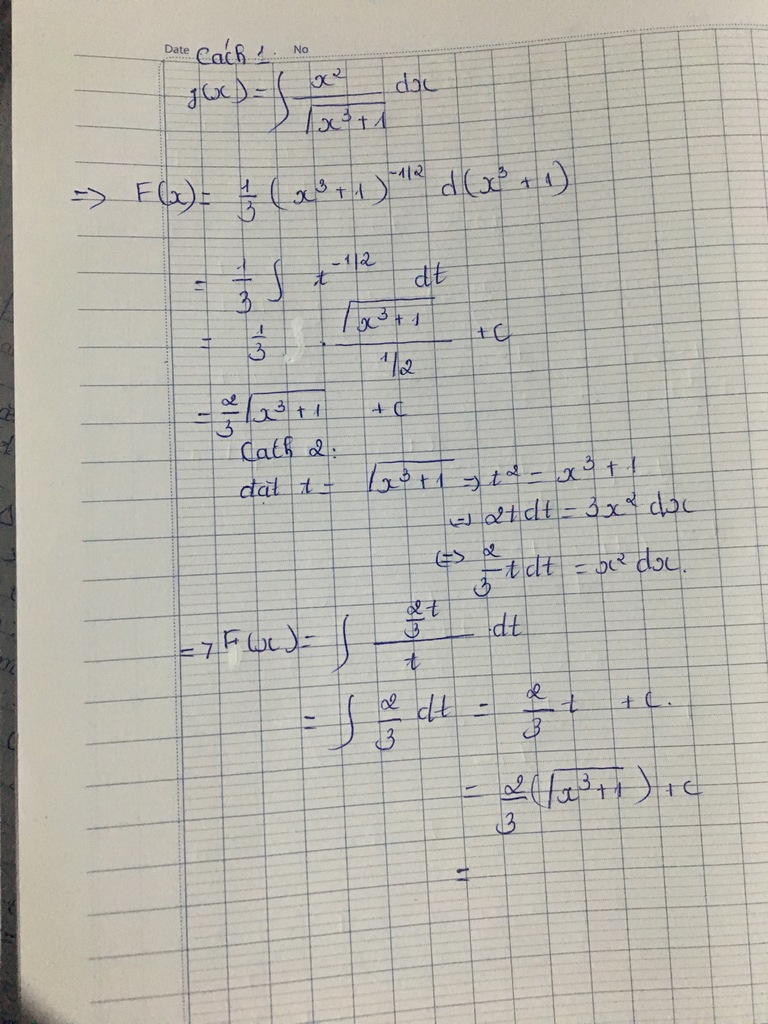 Date Cách 1. No
f(x) = ∫ x² / √(x³+1) dx
=> F(x) = 1/3 (x³+1)^(-1/2) d(x³+1)
= 1/3 ∫ t^(-1/2) dt
= 1/3 . √(x³+1) / (1/2) + C
= 2/3 √(x³+1) + C
Cách 2:
đặt t = √(x³+1) => t² = x³+1
<=> 2tdt = 3x² dx
<=> 2/3 tdt = x² dx.
=> F(x) = ∫ (2/3 t) / t . dt
= ∫ 2/3 dt = 2/3 t + C.
= 2/3 (√(x³+1)) + C
=